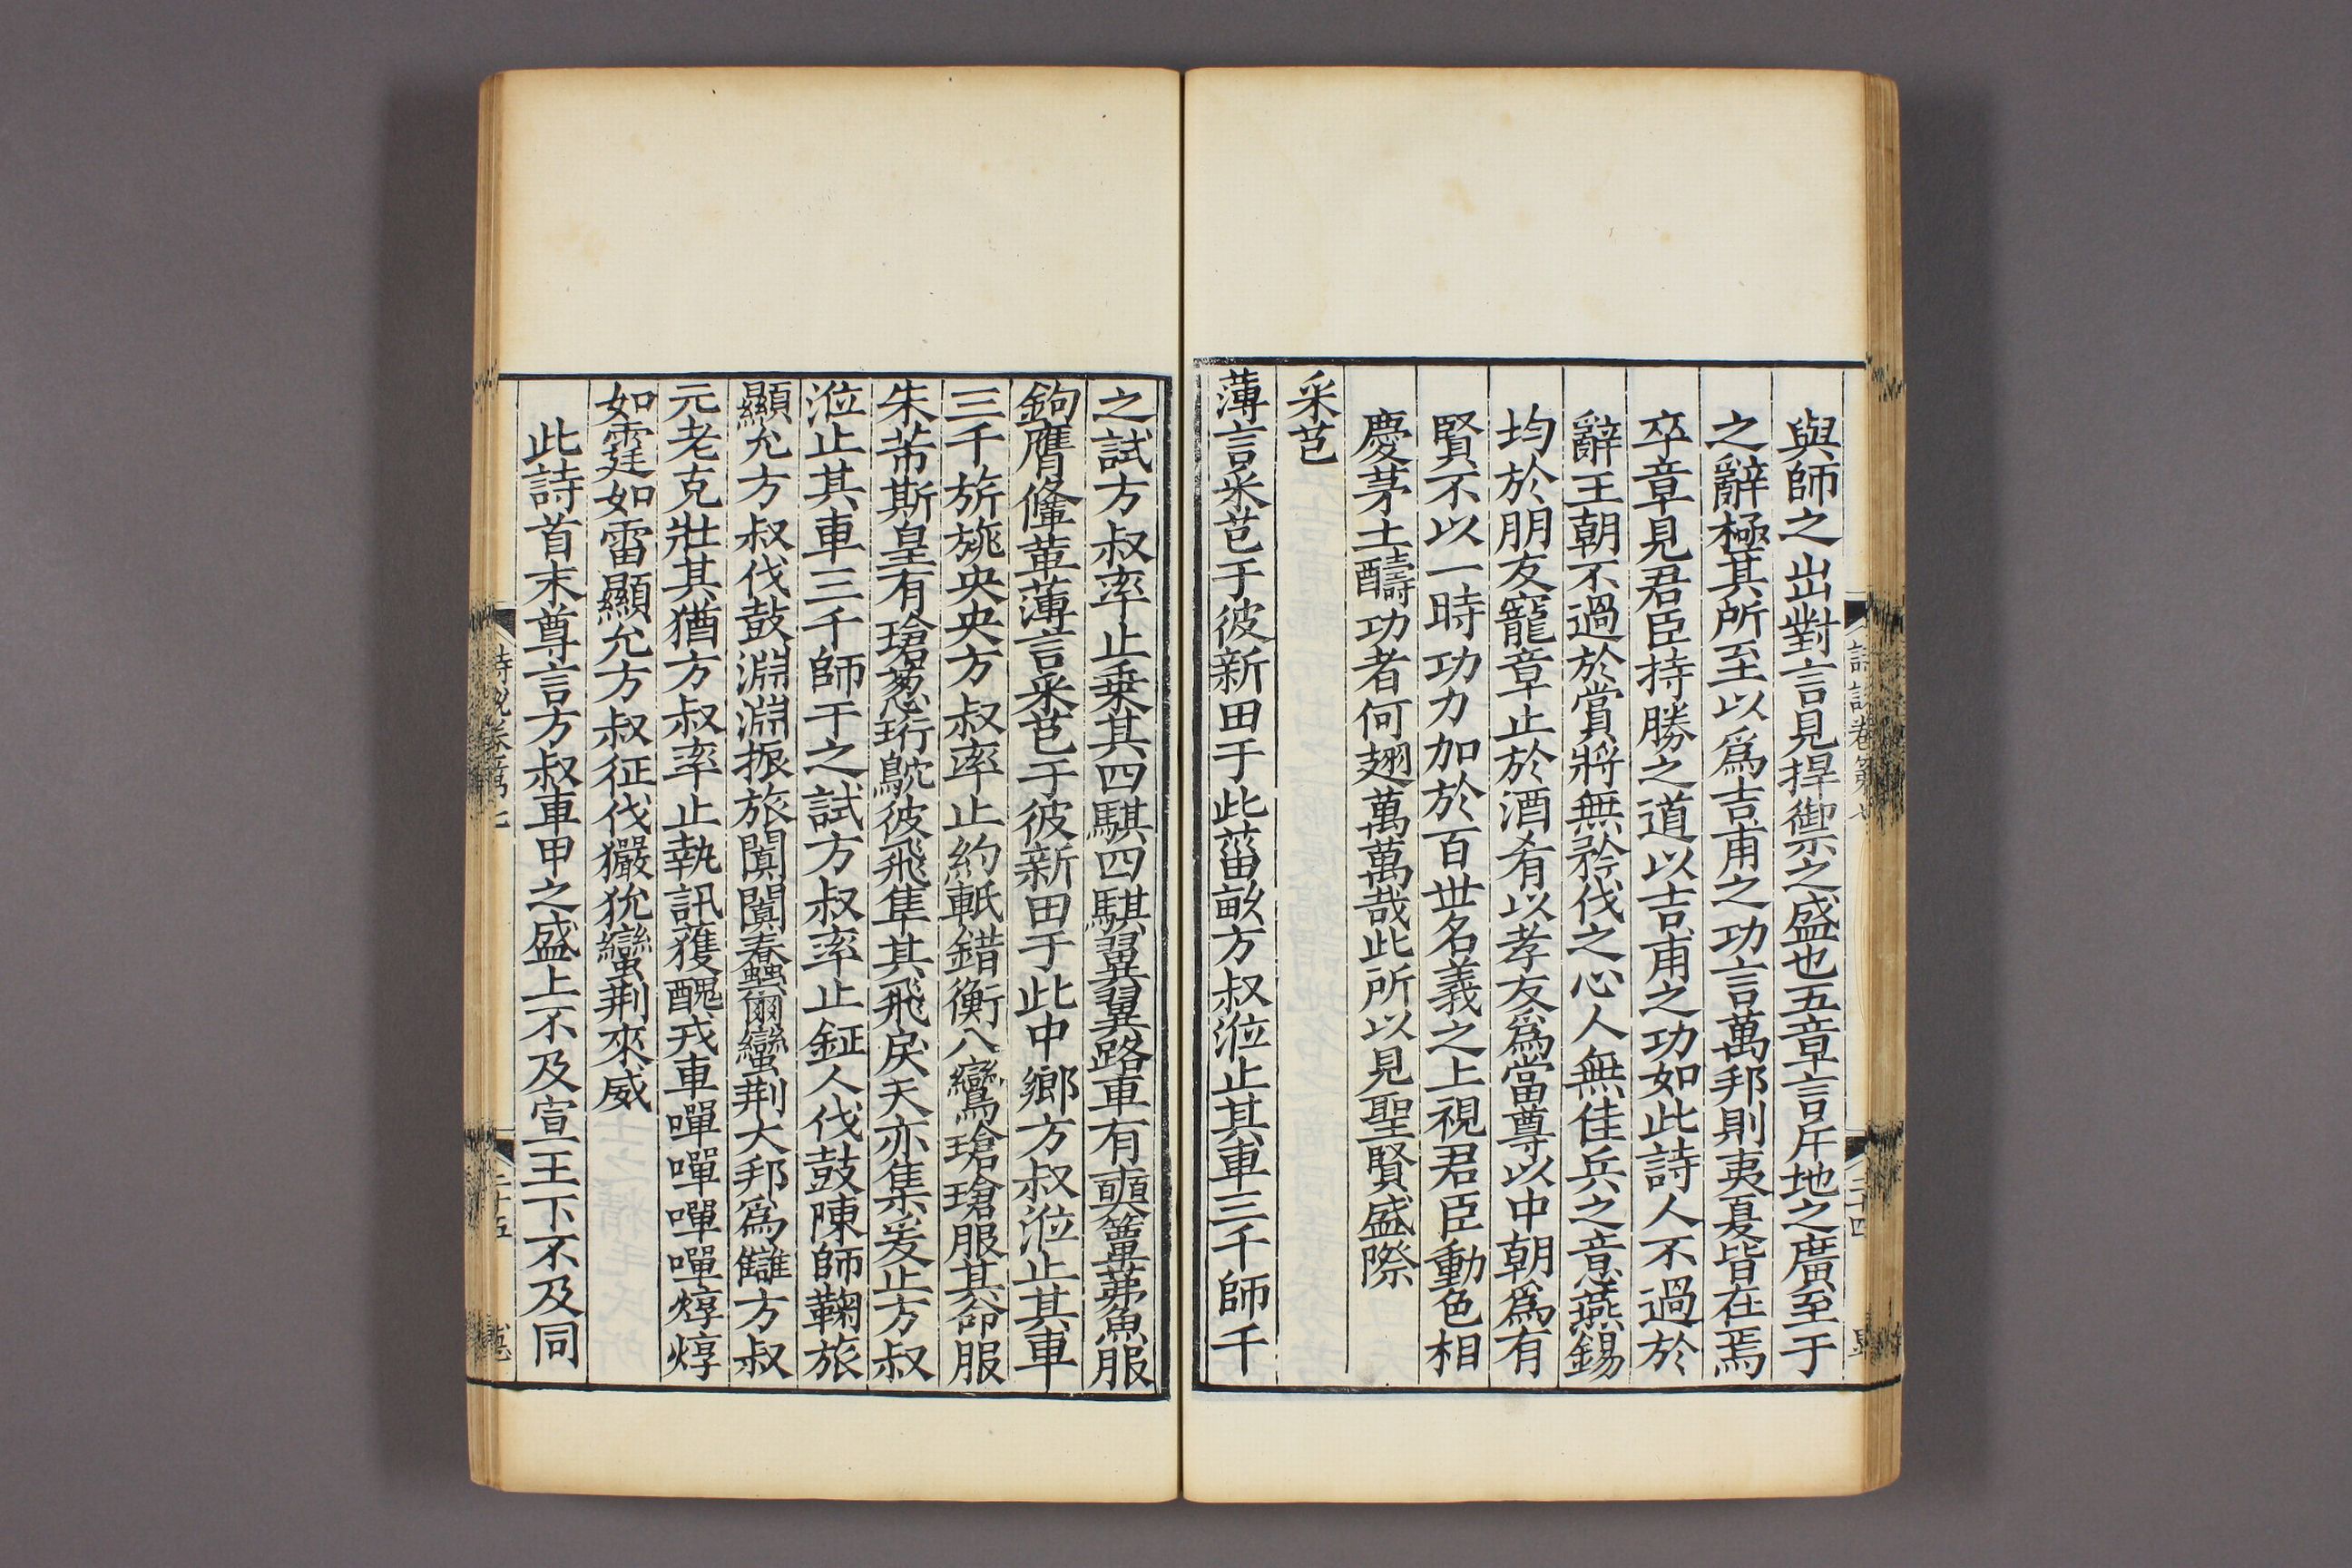 與師之出對言見捍禦之盛也五章言斥地之廣至于
之辭極其所至以爲吉甫之功言萬邦則夷夏皆在焉
卒章見君臣持勝之道以吉甫之功如此詩人不過於
辭王朝不過於賞將無矜伐之心人無佳兵之意燕錫
均於朋友寵章止於酒肴以孝友爲當尊以中朝爲有
賢不以一時功力加於百世名義之上視君臣動色相
慶茅土醻功者何翅萬萬哉此所以見聖賢盛際
采芑
薄言采芑于彼新田于此菑畝方叔涖止其車三千師干
詩說卷第七
二十四
之試方叔率止乗其四騏四騏翼翼路車有奭簟茀魚服
鉤膺鞗革薄言采芑于彼新田于此中鄉方叔涖止其車
三千旂旐央央方叔率止約軧錯衡八鸞瑲瑲服其命服
朱芾斯皇有瑲葱珩鴥彼飛隼其飛戾天亦集爰止方叔
涖止其車三千師干之試方叔率止鉦人伐鼓陳師鞠旅
顯允方叔伐鼓淵淵振旅闐闐蠢爾蠻荆大邦爲讎方叔
元老克壯其猶方叔率止執訊獲醜戎車嘽嘽嘽嘽焞焞
如霆如雷顯允方叔征伐玁狁蠻荆來威
此詩首末尊言方叔車甲之盛上不及宣王下不及同
詩說卷第七
二十五